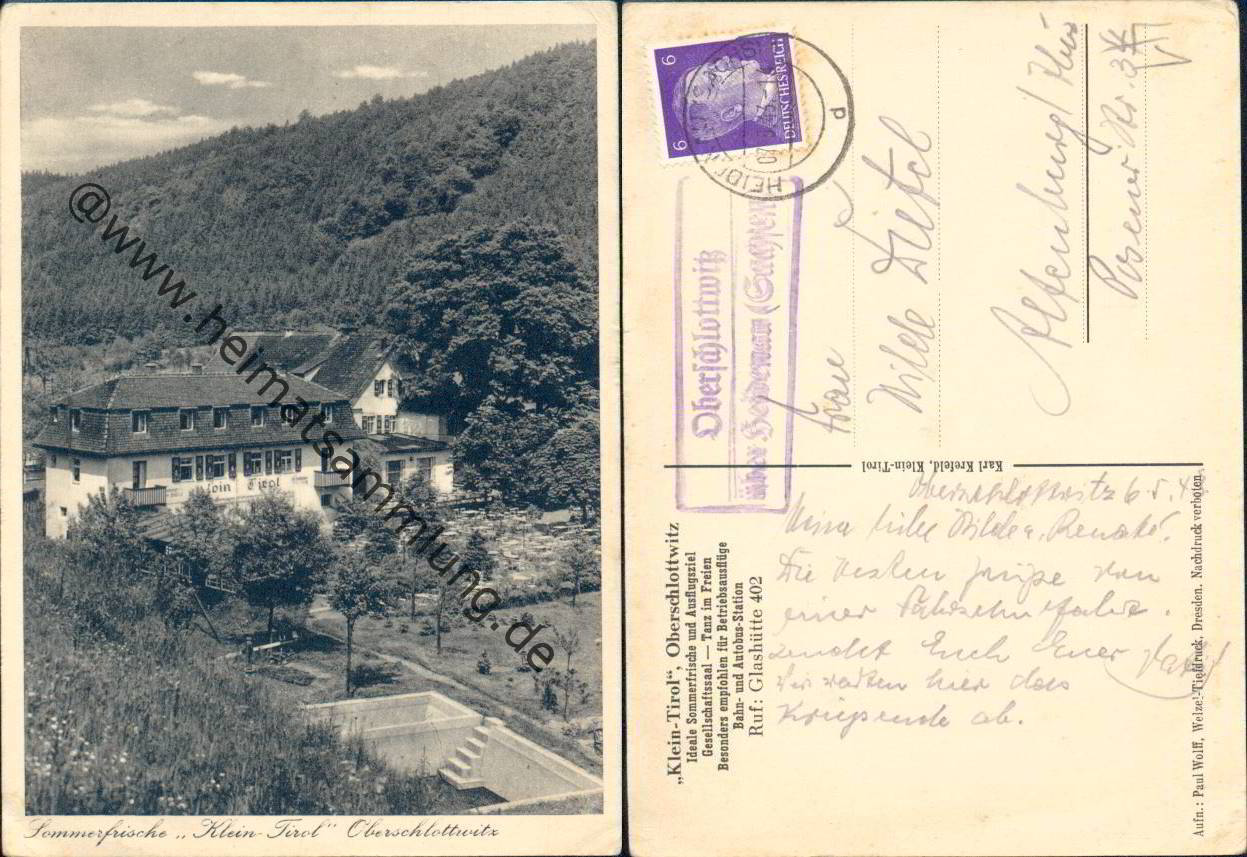 @www.heimatsammlung.de
Klein Tirol
Sommerfrische „Klein-Tirol“ Oberschlottwitz
6 DEUTSCHES REICH 6
HEID
d
Oberschlottwitz
über Heidenau (Sachsen
Frau
Hilde Dietel
Altenburg/Thür
Posener Str. 34
„Klein-Tirol“, Oberschlottwitz
Ideale Sommerfrische und Ausflugsziel
Gesellschaftssaal — Tanz im Freien
Besonders empfohlen für Betriebsausflüge
Bahn- und Autobus-Station
Ruf: Glashütte 402
Karl Krefeld, Klein-Tirol
Oberschlottwitz 6.5.4
Meine liebe Hilde u. Renate!
Die besten Grüße von
einer
sendet Euch Euer
Wir warten hier das
Kriegsende ab.
Aufn.: Paul Wolff, Welzel-Tiefdruck, Dresden. Nachdruck verboten.